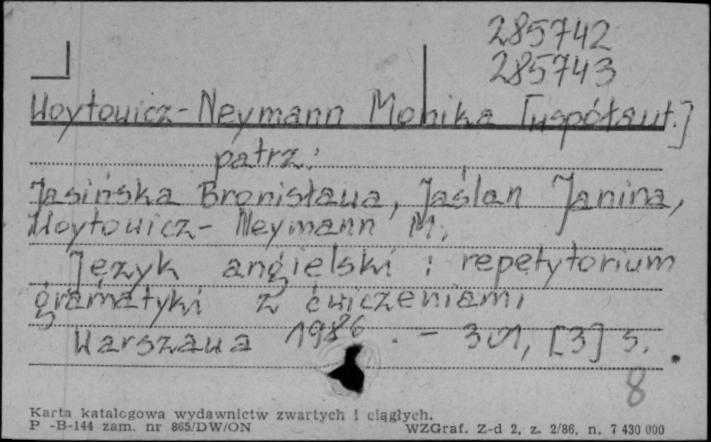 285742
285743
Woytowicz-Neymann Monika [współaut.]
patrz:
Jasińska Bronisława, Jaślan Janina,
Woytowicz-Neymann M.
Język angielski : repetytorium
gramatyki z ćwiczeniami
Warszawa 1986. - 301, [3] s.
8
Karta katalogowa wydawnictw zwartych i ciągłych.
P -B-144 zam. nr 865/DW/ON WZGraf. Z-d 2, z. 2/86, n. 7 430 000